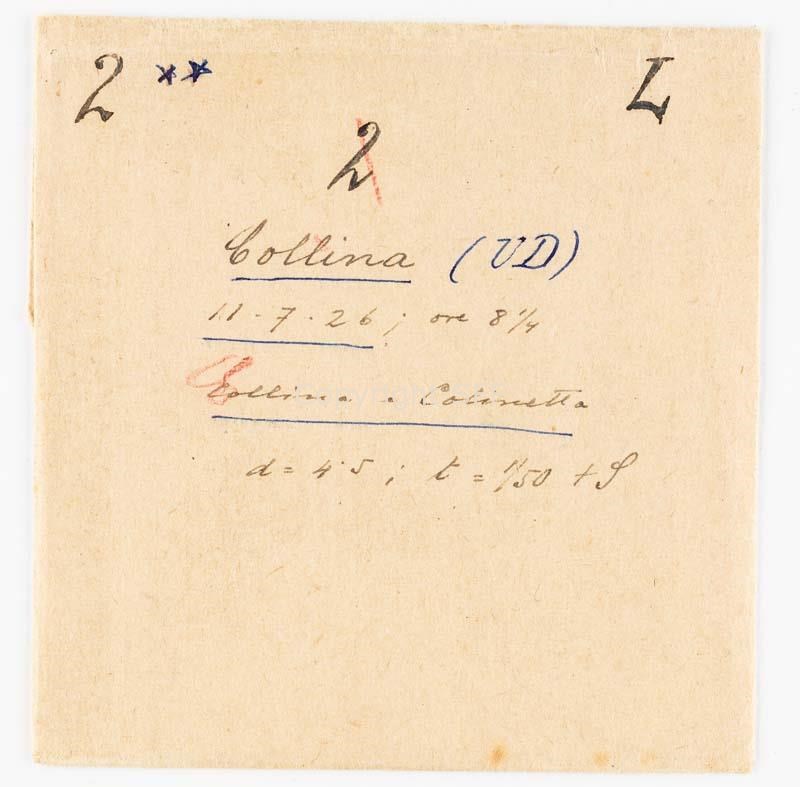 2 ** L
2
Collina (UD)
11-7-26; ore 8 1/4
Collina e Colinetta
d = 4.5; t = 1/50 + S